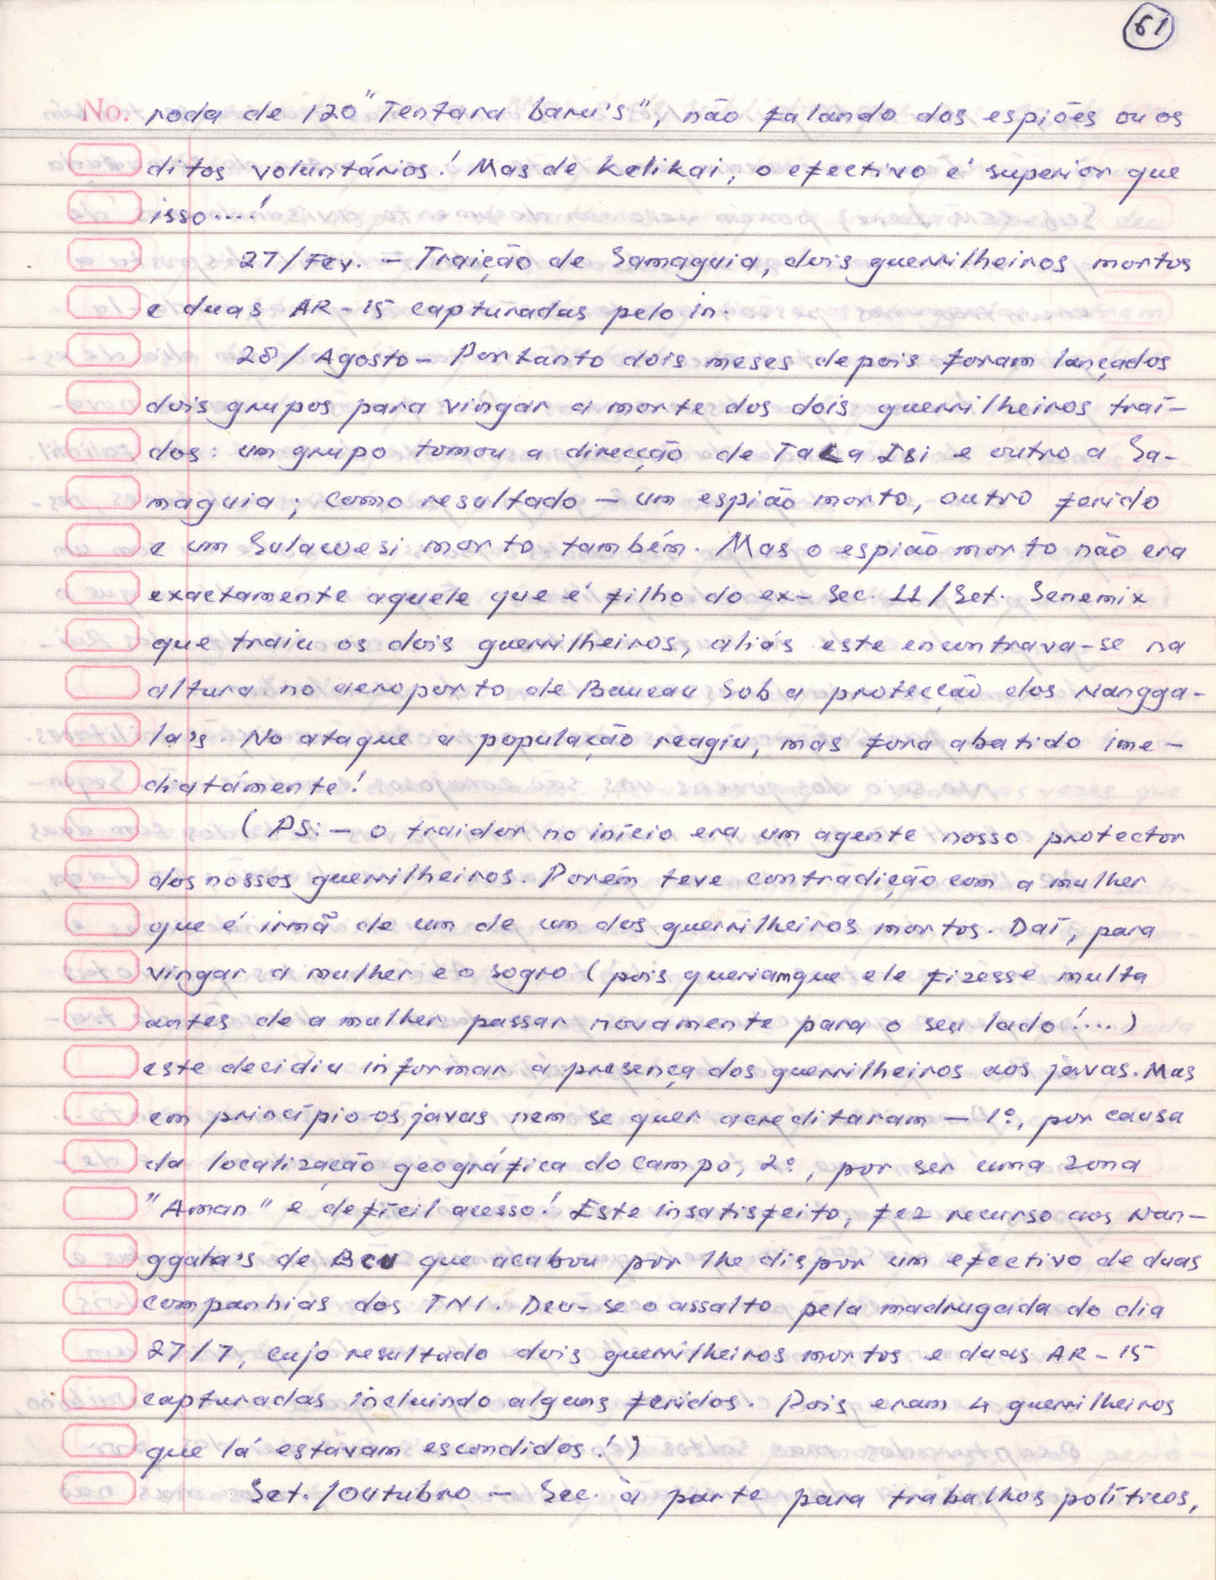 61
No. roda de 120 "Tentara baru's", não falando dos espiões ou os
ditos voluntários! Mas de Kelikai, o efectivo é súperior que
isso....!
27/Fev. - Traição de Samaguia, dois guerrilheiros mortos
e duas AR-15 capturadas pelo in.
28/Agosto - Portanto dois meses depois foram lançados
dois grupos para vingar a morte dos dois guerrilheiros traí-
dos: um grupo tomou a direcção de Tala Isi e outro a Sa-
maguia; como resultado - um espião morto, outro ferido
e um Sulawesi morto também. Mas o espião morto não era
exactamente aquele que é filho do ex-Sec. 11/Set. Senemix
que traiu os dois guerrilheiros, aliás este encontrava-se na
altura no aeroporto de Baucau sob a protecção dos Nangga-
la's. No ataque a população reagiu, mas fora abatido ime-
diatámente!
(PS: - o traidor no início era um agente nosso protector
dos nossos guerrilheiros. Porém teve contradição com a mulher
que é irmã de um de um dos guerrilheiros mortos. Daí, para
vingar a mulher e o sogro (pois queriam que ele fizesse multa
antes de a mulher passar novamente para o seu lado!...)
este decidiu informar a presença dos guerrilheiros aos javas. Mas
em princípio os javas nem se quer acreditaram - 1º, por causa
da localização geográfica do campo, 2º, por ser uma zona
"Aman" e defícil acesso! Este insatisfeito, fez recurso aos Nan-
ggala's de Bcu que acabou por lhe dispor um efectivo de duas
companhias dos TNI. Deu-se o assalto pela madrugada do dia
27/7, cujo resultado dois guerrilheiros mortos e duas AR-15
capturadas incluindo alguns feridos. Pois eram 4 guerrilheiros
que lá estavam escondidos!)
Set./Outubro - Sec. à parte para trabalhos políticos,